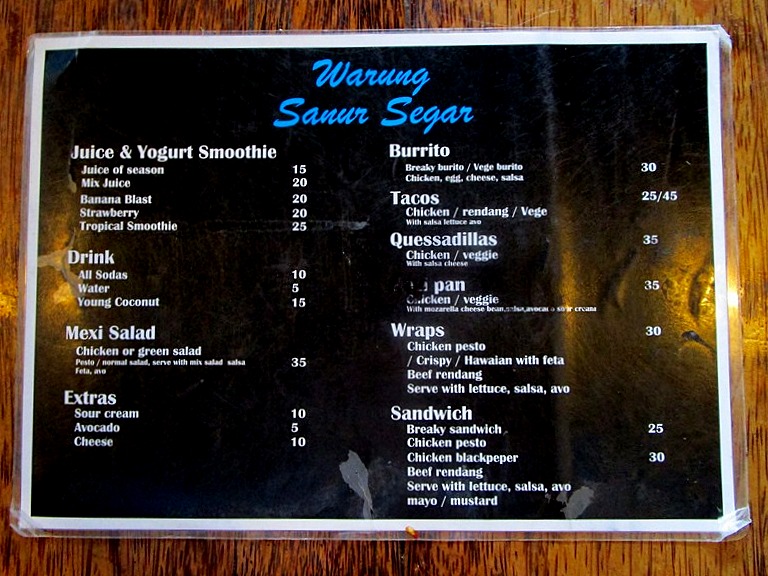 Warung
Sanur Segar
Juice & Yogurt Smoothie
Juice of season 15
Mix Juice 20
Banana Blast 20
Strawberry 20
Tropical Smoothie 25
Drink
All Sodas 10
Water 5
Young Coconut 15
Mexi Salad
Chicken or green salad
Pesto / normal salad, serve with mix salad salsa 35
Feta, avo
Extras
Sour cream 10
Avocado 5
Cheese 10
Burrito
Breaky burito / Vege burito 30
Chicken, egg, cheese, salsa
Tacos 25/45
Chicken / rendang / Vege
With salsa lettuce avo
Quessadillas 35
Chicken / veggie
With salsa cheese
pan 35
Chicken / veggie
With mozarella cheese bean,salsa,avocado sour cream
Wraps 30
Chicken pesto
/ Crispy / Hawaian with feta
Beef rendang
Serve with lettuce, salsa, avo
Sandwich
Breaky sandwich 25
Chicken pesto
Chicken blackpeper 30
Beef rendang
Serve with lettuce, salsa, avo
mayo / mustard